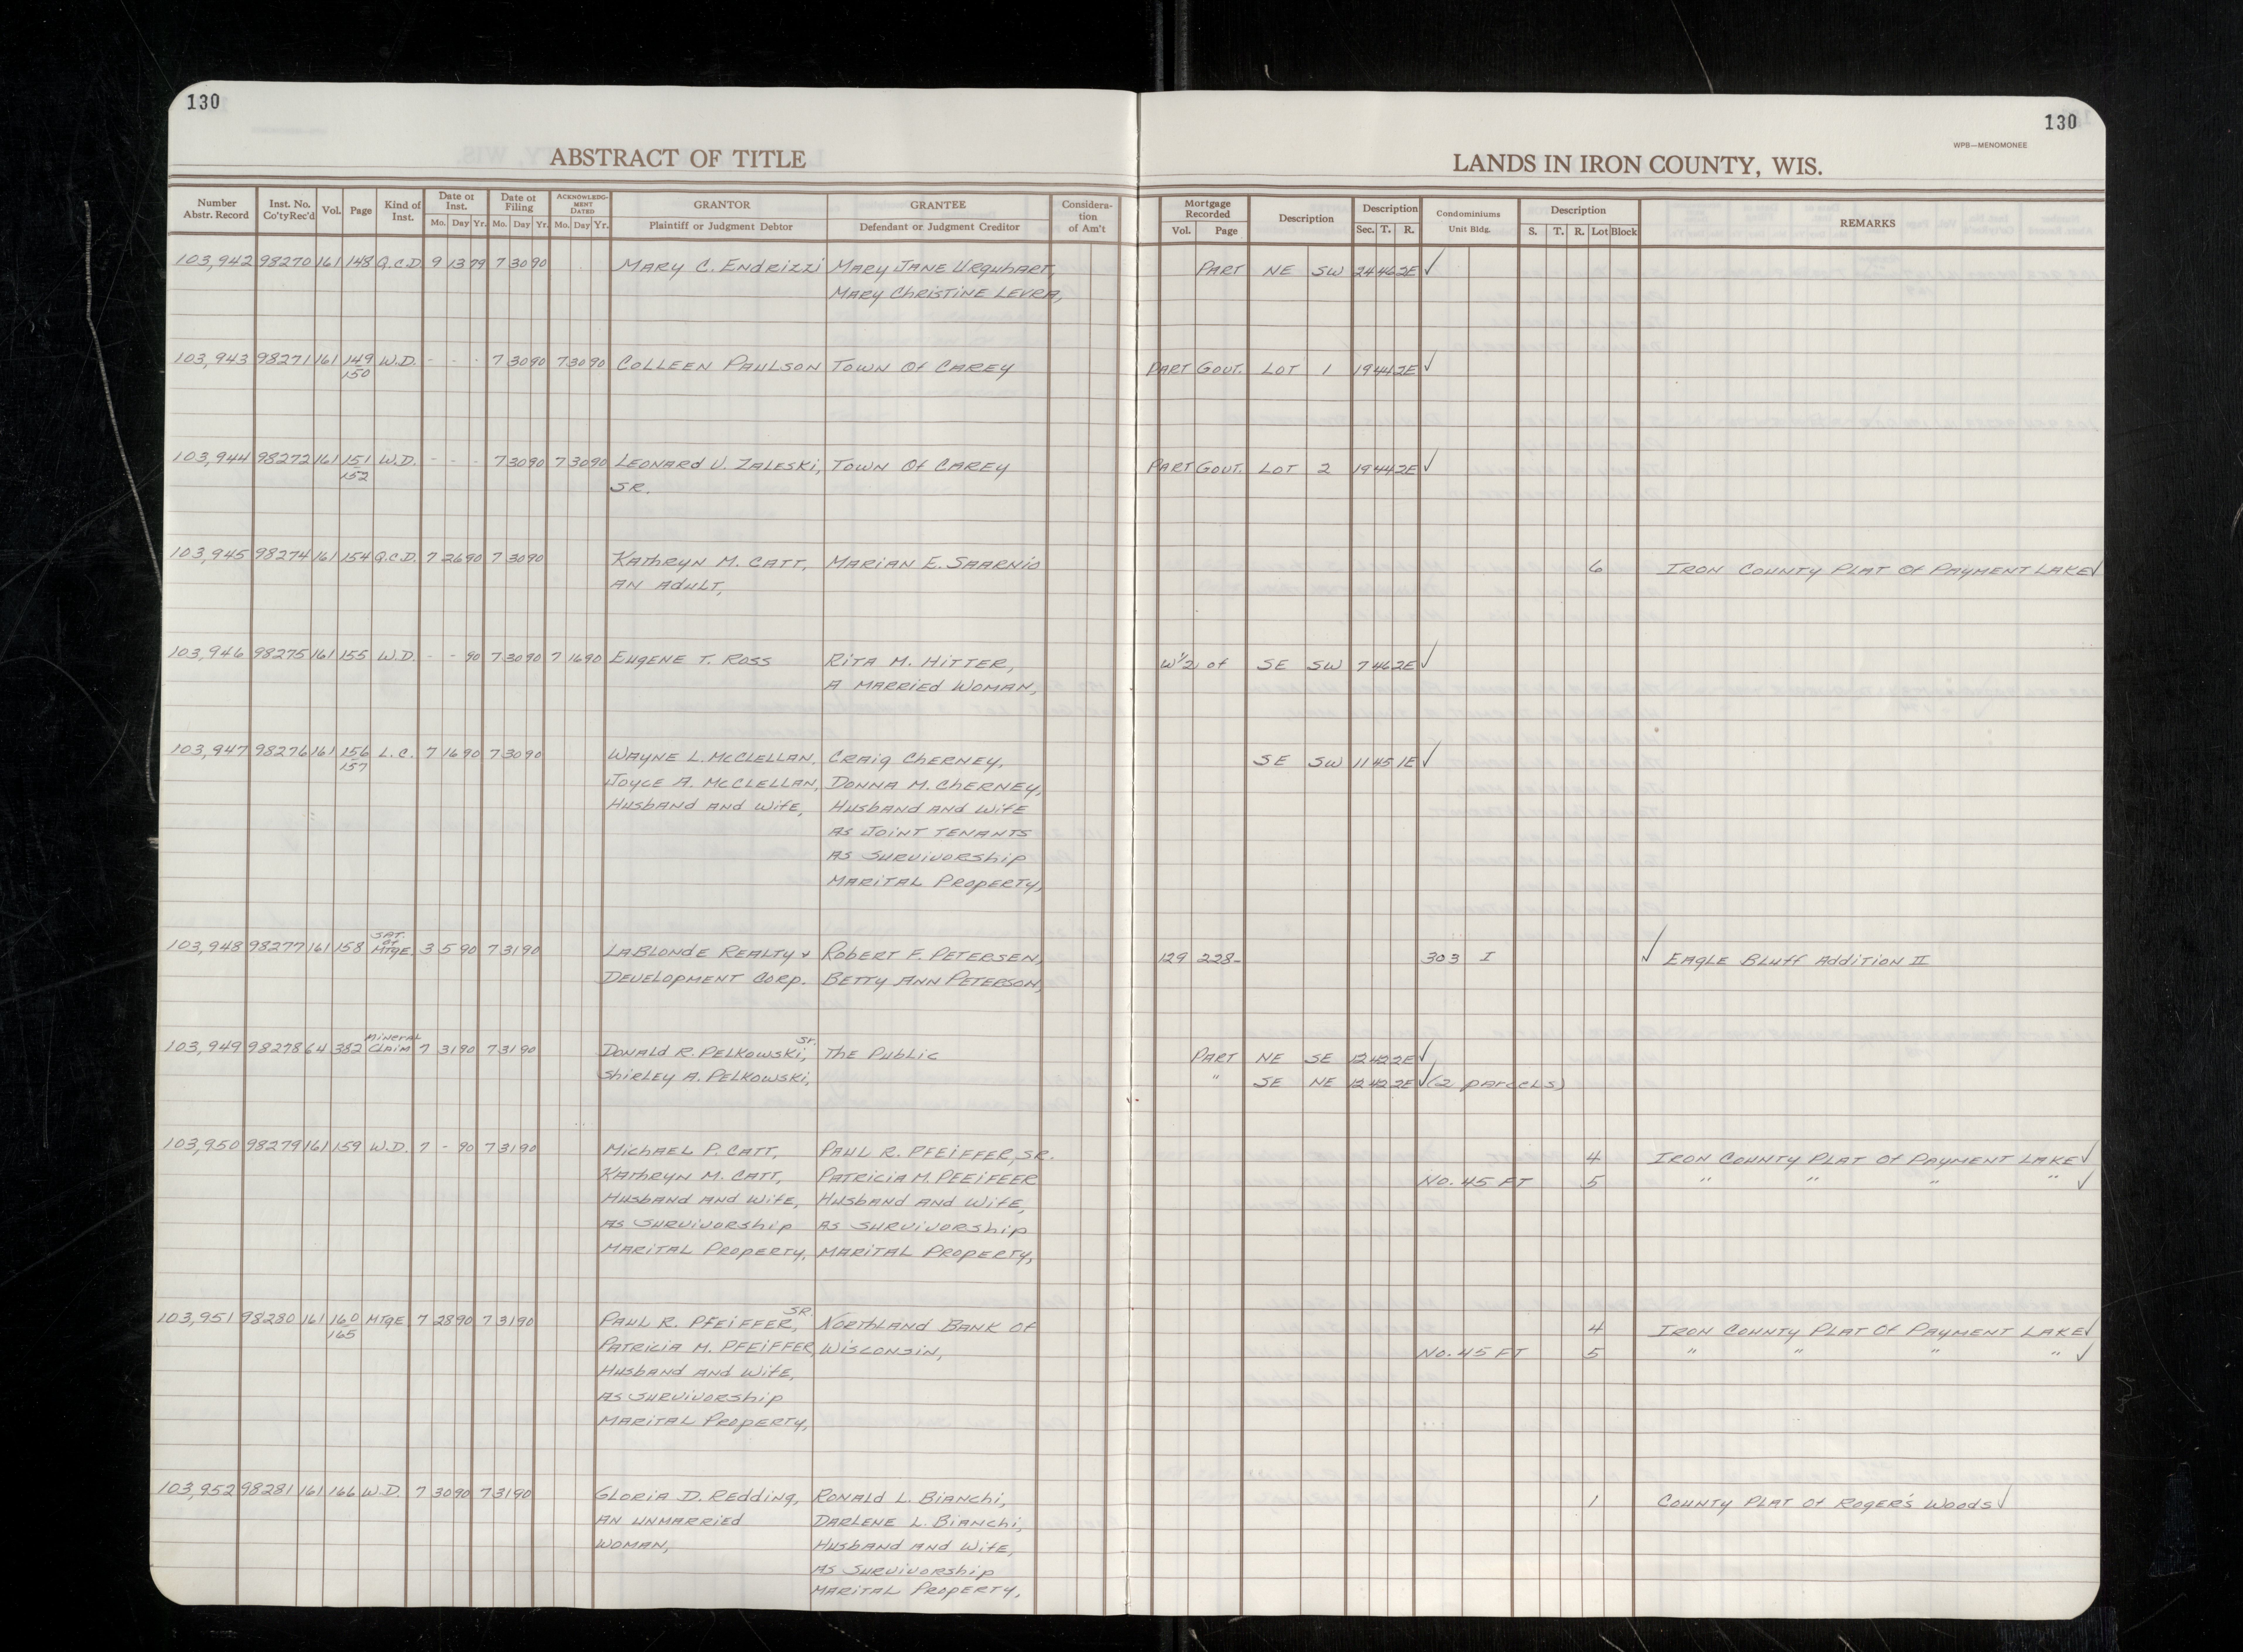 130
130
WPB—MENOMONEE
ABSTRACT OF TITLE
LANDS IN IRON COUNTY, WIS.
Number Abstr. Record Inst. No. Co'ty Rec'd Vol. Page Kind of Inst. Date of Inst. Mo. Day Yr. Date of Filing Mo. Day Yr. ACKNOWLEDG-MENT DATED Mo. Day Yr. GRANTOR Plaintiff or Judgment Debtor GRANTEE Defendant or Judgment Creditor Considera-tion of Am't Mortgage Recorded Vol. Page Description Description Sec. T. R. Condominiums Unit Bldg. Description S. T. R. Lot Block REMARKS
103,942 98270 161 148 Q.C.D. 9 13 79 7 30 90 MARY C. ENDRIZZI MARY JANE URQUHART, PART NE SW 24 46 2E ✓
MARY CHRISTINE LEVRA,
103,943 98271 161 149 W.D. - - - 7 30 90 7 30 90 COLLEEN PAULSON TOWN OF CAREY PART GOVT. LOT 1 19 44 2E ✓
150
103,944 98272 161 151 W.D. - - - 7 30 90 7 30 90 LEONARD V. ZALESKI, TOWN OF CAREY PART GOVT. LOT 2 19 44 2E ✓
152 SR.
103,945 98274 161 154 Q.C.D. 7 26 90 7 30 90 KATHRYN M. CATT, MARIAN E. SAARNIO 6 IRON COUNTY PLAT OF PAYMENT LAKE ✓
AN ADULT,
103,946 98275 161 155 W.D. - - 90 7 30 90 7 16 90 EUGENE T. ROSS RITA M. HITTER, W 1/2 OF SE SW 7 46 2E ✓
A MARRIED WOMAN,
103,947 98276 161 156 L.C. 7 16 90 7 30 90 WAYNE L. McCLELLAN, CRAIG CHERNEY, SE SW 11 45 1E ✓
157 JOYCE A. McCLELLAN, DONNA M. CHERNEY,
HUSBAND AND WIFE, HUSBAND AND WIFE
AS JOINT TENANTS
AS SURVIVORSHIP
MARITAL PROPERTY,
103,948 98277 161 158 SAT. OF MTGE. 3 5 90 7 31 90 LABLONDE REALTY + ROBERT F. PETERSEN, 129 228- 303 I ✓ EAGLE BLUFF ADDITION II
DEVELOPMENT CORP. BETTY ANN PETERSON,
103,949 98278 64 382 MINERAL CLAIM 7 31 90 7 31 90 DONALD R. PELKOWSKI, SR. THE PUBLIC PART NE SE 12 42 2E ✓
SHIRLEY A. PELKOWSKI, " SE NE 12 42 2E ✓ (2 PARCELS)
103,950 98279 161 159 W.D. 7 - 90 7 31 90 MICHAEL P. CATT, PAUL R. PFEIFFER, SR. 4 IRON COUNTY PLAT OF PAYMENT LAKE ✓
KATHRYN M. CATT, PATRICIA M. PFEIFEER NO. 45 FT 5 " " " " ✓
HUSBAND AND WIFE, HUSBAND AND WIFE,
AS SURVIVORSHIP AS SURVIVORSHIP
MARITAL PROPERTY, MARITAL PROPERTY,
103,951 98280 161 160 MTGE 7 28 90 7 31 90 PAUL R. PFEIFFER, SR. NORTHLAND BANK OF 4 IRON COUNTY PLAT OF PAYMENT LAKE ✓
165 PATRICIA M. PFEIFFER, WISCONSIN, NO. 45 FT 5 " " " " ✓
HUSBAND AND WIFE,
AS SURVIVORSHIP
MARITAL PROPERTY,
103,952 98281 161 166 W.D. 7 30 90 7 31 90 GLORIA D. REDDING, RONALD L. BIANCHI, 1 COUNTY PLAT OF ROGER'S WOODS ✓
AN UNMARRIED DARLENE L. BIANCHI,
WOMAN, HUSBAND AND WIFE,
AS SURVIVORSHIP
MARITAL PROPERTY,